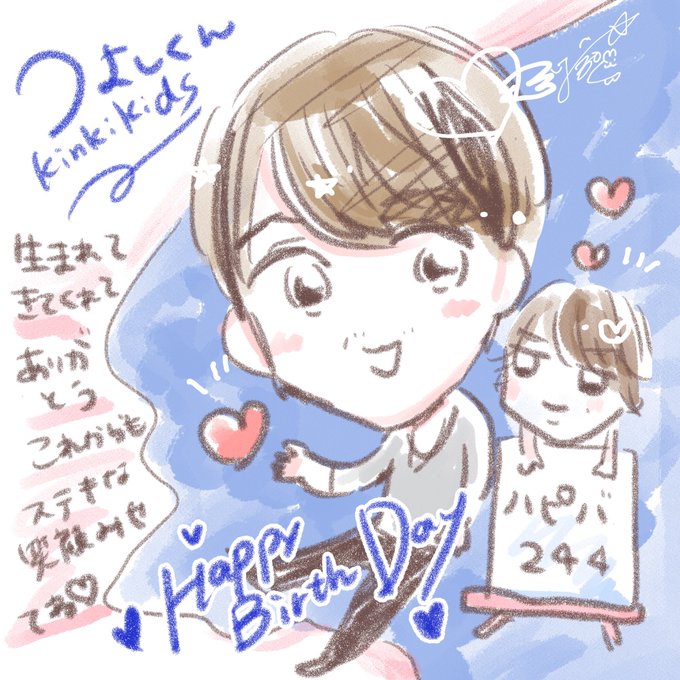 つよしくん
kinkikids
生まれて
きてくれて
ありが
とう
これからも
ステキな
笑顔みせ
てね♡
Happy
Birth Day
ハピバ
244